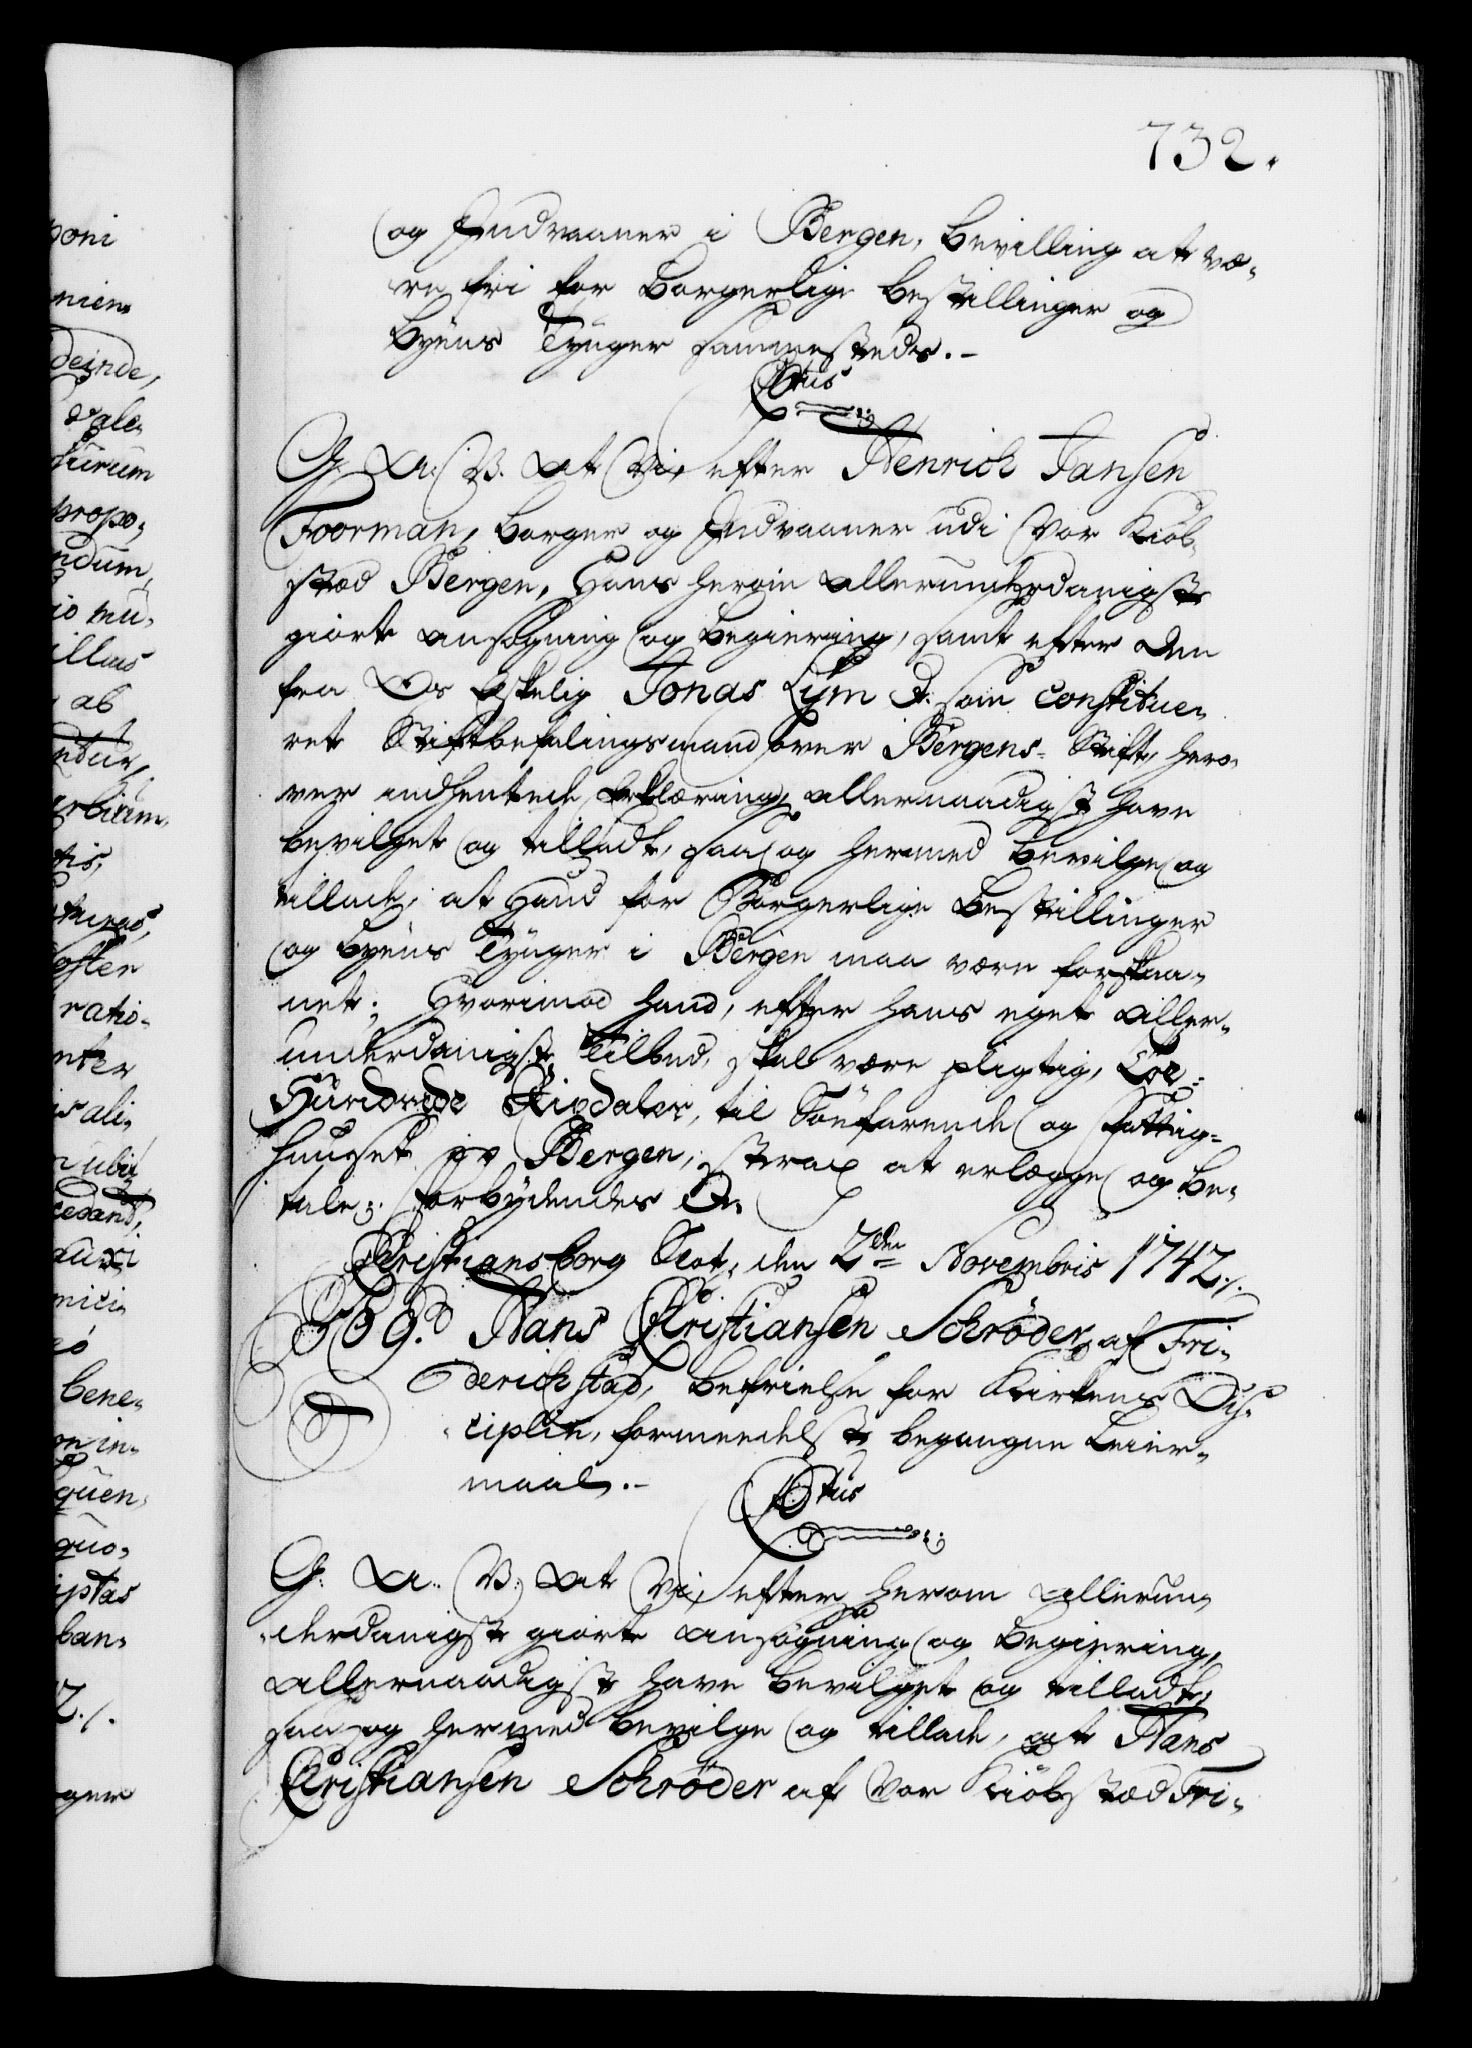 732.
og Indvaaner i Bergen, Bevilling at væ-
re fri for Borgerlige Bestillinger og
Byens Tynger sammesteds.-
Ctus
G. A. V. At Vi, efter Henrich Jansen
Foorman, Borger og Indvaaner udi Vor Kiøb-
stæd Bergen, Hans herom allerunderdanigste
giorte Ansøgning og Begiering, samt efter den
fra Os Elskelig Jonas Lym &c. som Constitue-
ret Stiftbefalingsmand over Bergens-Stift, hero-
ver indhentede Erklæring, allernaadigst have
bevilget og tilladt, saa og hermed bevilge og
tillade, at Hand for Borgerlige Bestillinger
og Byens Tynger i Bergen maa være forskaa-
net; Hvorimod hand, efter hans eget aller-
underdanigste Tilbud, skal være pligtig,
Hundrede Rixdaler, til Söefarende og Fattig-
Huuset i Bergen, strax at erlægge og be-
tale; Forbydendes &c.
Christiansborg Slot, den 2den Novembris 1742./.
Hans Christiansen Schrøder, af Fri-
derichstad, Befrielse for Kirkens Dis-
ciplin, formedelst begangne Leier-
maal.-
Ctus
G. A. V. At Vi, efter herom allerun-
derdanigste giorte Ansøgning og Begiering,
allernaadigst have bevilget og tilladt,
saa og hermed bevilge og tillade, at Hans
Christiansen Schrøder af Vor Kiøbstæd Fri-
poni
niens
deinde,
vale-
surum
propo-
ndum,
io nu-
illius
ab
ntur,
tis,
oster
ratio-
nter
is ali-
ubi
auxi
nici-
bene-
on in-
quen-
quo-
iptas
ban-
2./.
ger